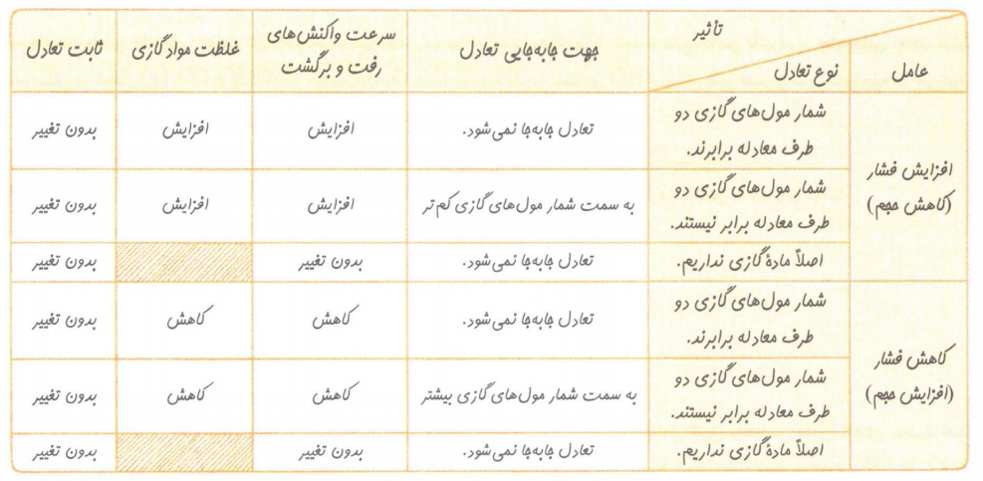 عامل
تأثیر
نوع تعادل
جهت جابه‌جایی تعادل
سرعت واکنش‌های
رفت و برگشت
غلظت مواد گازی
ثابت تعادل
افزایش فشار
(کاهش حجم)
شمار مول‌های گازی دو
طرف معادله برابرند.
تعادل جابه‌جا نمی‌شود.
افزایش
افزایش
بدون تغییر
شمار مول‌های گازی دو
طرف معادله برابر نیستند.
به سمت شمار مول‌های گازی کم‌تر
افزایش
افزایش
بدون تغییر
اصلاً مادهٔ گازی نداریم.
تعادل جابه‌جا نمی‌شود.
بدون تغییر
بدون تغییر
کاهش فشار
(افزایش حجم)
شمار مول‌های گازی دو
طرف معادله برابرند.
تعادل جابه‌جا نمی‌شود.
کاهش
کاهش
بدون تغییر
شمار مول‌های گازی دو
طرف معادله برابر نیستند.
به سمت شمار مول‌های گازی بیشتر
کاهش
کاهش
بدون تغییر
اصلاً مادهٔ گازی نداریم.
تعادل جابه‌جا نمی‌شود.
بدون تغییر
بدون تغییر